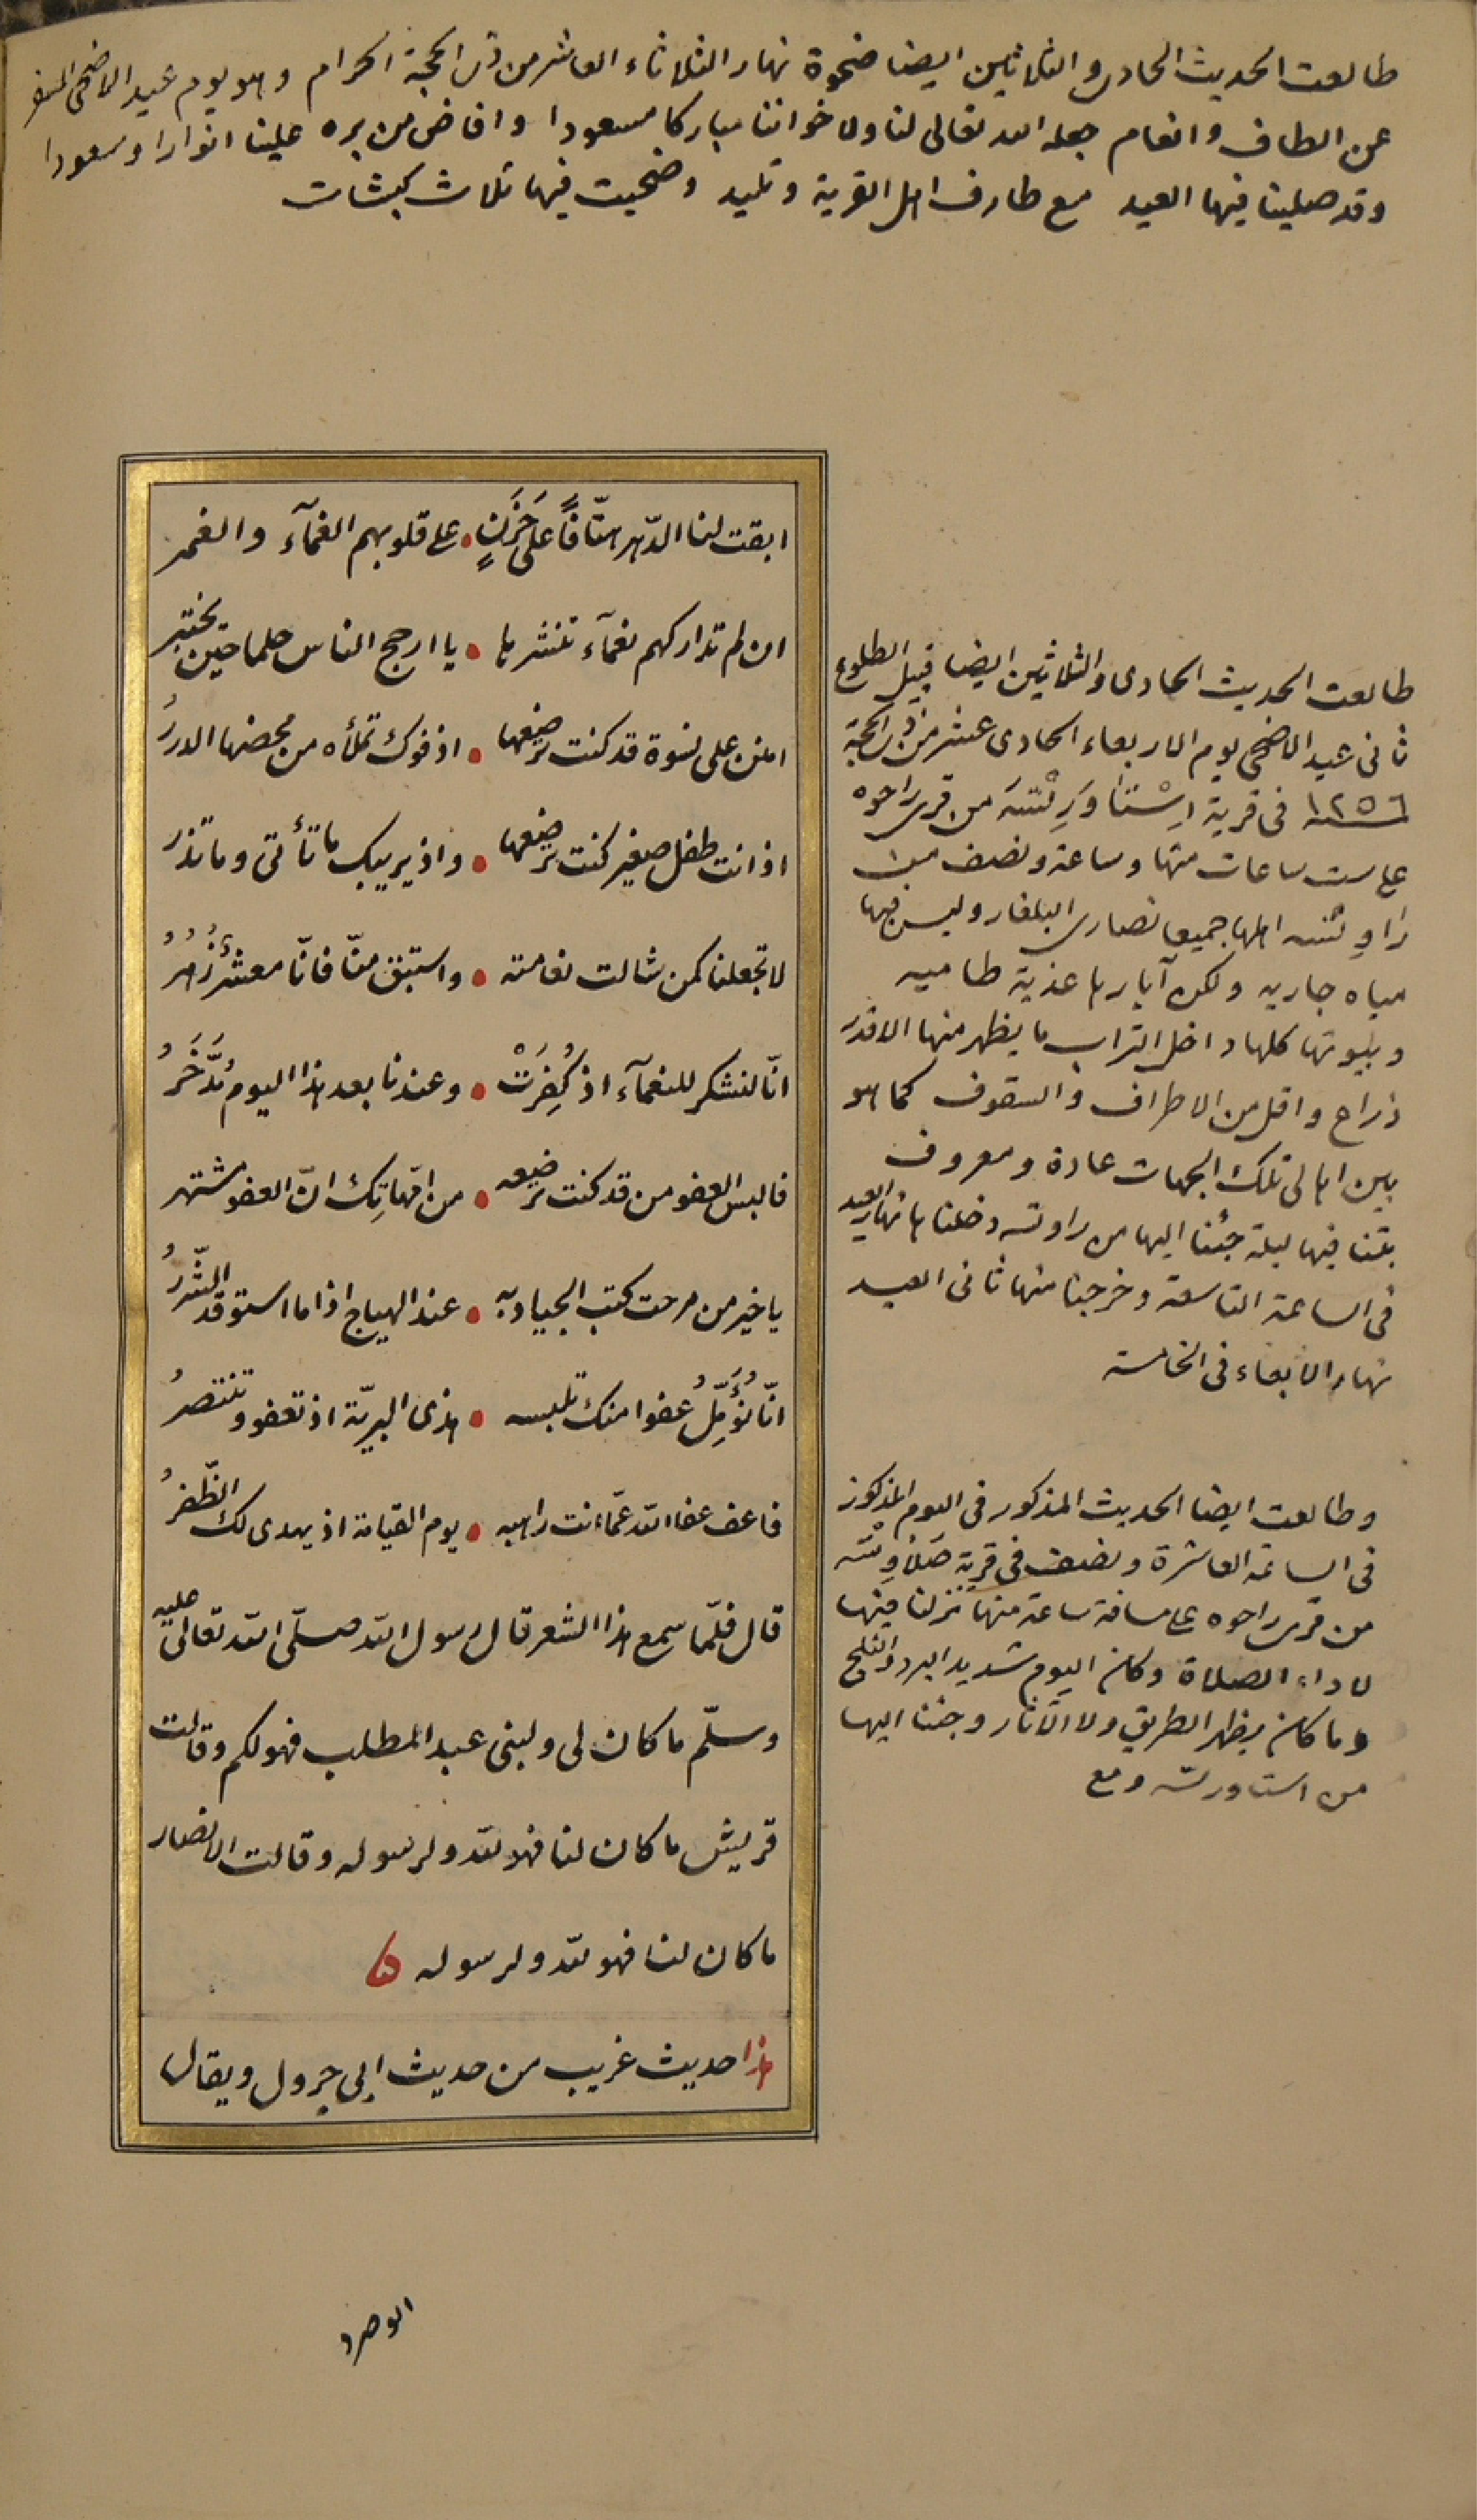 طالعت الحديث الحادى والثلاثين ايضا ضحوة نهار الثلاثاء العاشر من ذى الحجة الحرام وهو يوم عيد الاضحى المسفر
عن الطاف وانعام جعله الله تعالى لنا ولاخواننا مباركا مسعودا وافاض من بره علينا انوارا وسعودا
وقد صلينا فيها العيد مع طارف اهل القرية وتليد وضحيت فيها ثلاث كبشات
ابقت لنا الدّهر هتّافًا على حَزَنٍ • على قلوبهم الغمآء والغمر
ان لم تداركهم نعمآء تنشرها • يا ارجح الناس حلما حين يختبر
امنن على نسوة قد كنت ترضعها • اذ فوك تملأه من محضها الدررُ
اذ انت طفل صغير كنت ترضعها • واذ يريبك ما تأتى وما تذر
لا تجعلنا كمن شالت نعامته • واستبق منّا فانّا معشرٌ زُهُرُ
انّا لنشكر للنعمآء اذ كُفِرَتْ • وعندنا بعد هذا اليوم مُدَّخَرُ
فالبس العفو من قد كنت ترضعه • من امّهاتِك انّ العفو مشتهر
يا خير من مرحت كتب الجياد به • عند الهياج اذا ما استوقد الشّررُ
انّا نُؤَمِّلُ عفوا منك تلبسه • هذى البريّة اذ تعفو وتنتصرُ
فاعف عفا الله عمّا انت راهبه • يوم القيامة اذ يهدى لك الظّفرُ
قال فلمّا سمع هذا الشعر قال رسول الله صلّى الله تعالى عليه
وسلّم ما كان لى ولبنى عبد المطلب فهو لكم وقالت
قريش ما كان لنا فهو لله ولرسوله وقالت الانصار
ما كان لنا فهو لله ولرسوله
هذا حديث غريب من حديث ابى جرول ويقال
طالعت الحديث الحادى والثلاثين ايضا قبيل الطلوع
ثانى عيد الاضحى يوم الاربعاء الحادى عشر من ذى الحجة
١٢٥٦ فى قرية اِسْتَاوَرِتْسَه من قرى راحوه
على ست ساعات منها وساعة ونصف من
راوتسه اهلها جميعا نصارى البلغار وليس فيها
مياه جاريه ولكن آبارها عذبة طاميه
وبيوتها كلها داخل التراب ما يظهر منها الا قدر
ذراع واقل من الاطراف والسقوف كما هو
بين اهالى تلك الجهات عادة ومعروف
بتنا فيها ليلة جئنا اليها من راوتسه دخلناها نهار العيد
فى الساعة التاسعة وخرجنا منها ثانى العيد
نهار الاربعاء فى الخامسة
وطالعت ايضا الحديث المذكور فى اليوم المذكور
فى الساعة العاشرة ونصف فى قرية
من قرى راحوه على مسافة ساعة منها نزلنا فيها
لاداء الصلاة وكان اليوم شديد البرد والثلج
وما كان يظهر الطريق ولا الآثار وجئنا اليها
من استاورتسه ومع